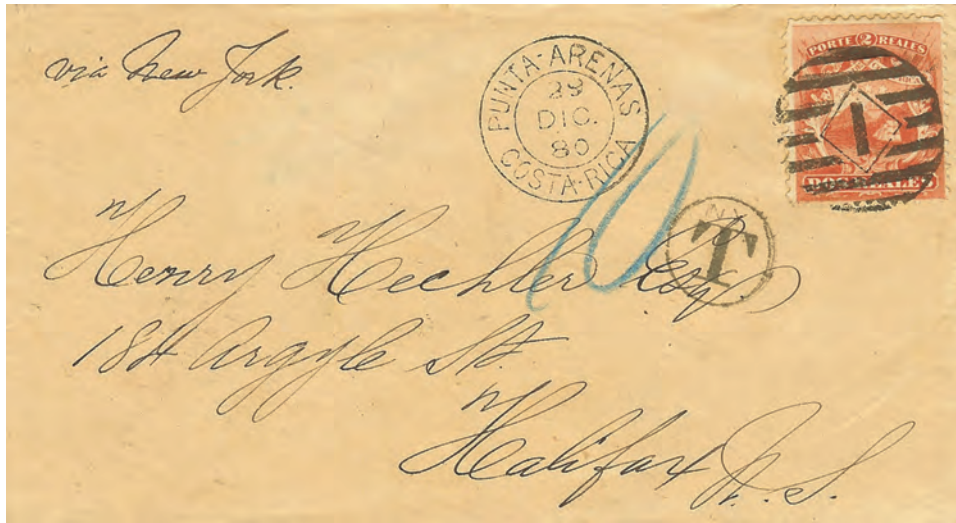 via New York.
PUNTA-ARENAS
29
DIC.
80
COSTA-RICA
PORTE 2 REALES
1
DOS REALES
10
N.Y.
T
Henry Hechler Esq
184 Argyle St.
Halifax N.S.